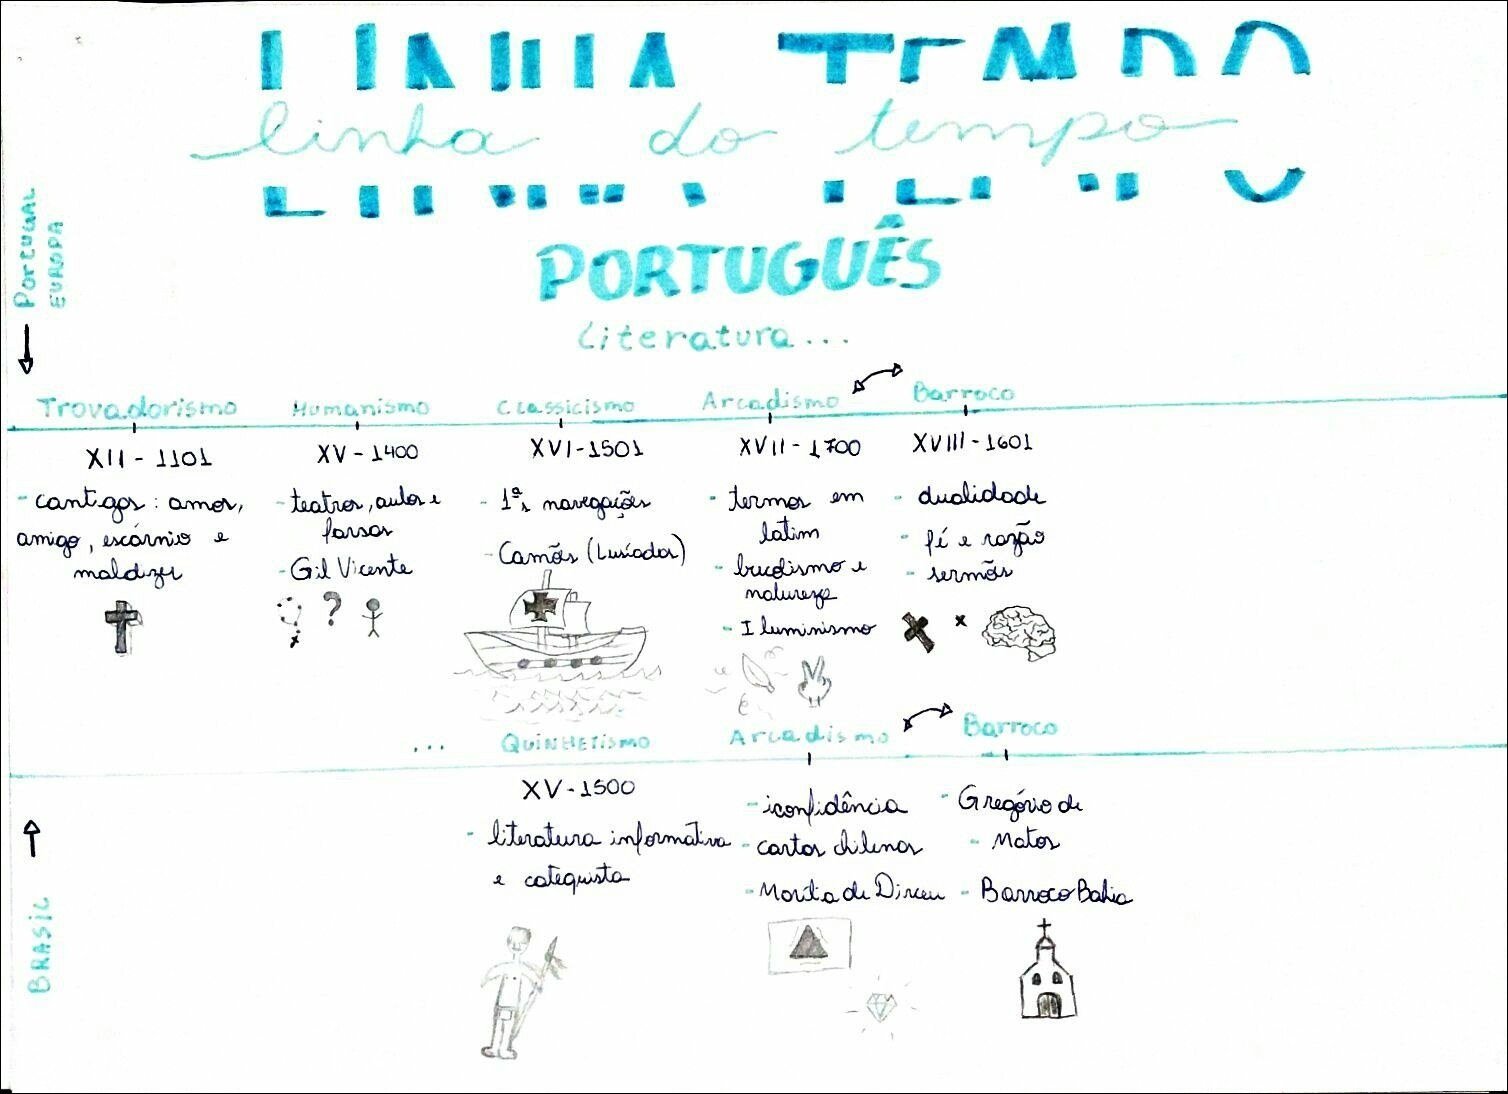 LINHA TEMPO
linha do tempo
PORTUGUÊS
Literatura...
PORTUGAL
EUROPA
Trovadorismo
XII - 1101
- cantigas: amor,
amigo, escárnio e
maldizer
Humanismo
XV - 1400
- teatros, autos e
farsas
- Gil Vicente
?
Classicismo
XVI - 1501
- 1ªs navegações
- Camões (Lusíadas)
Arcadismo
XVII - 1700
- termos em
latim
- bucolismo e
natureza
- Iluminismo
Barroco
XVIII - 1601
- dualidade
- fé e razão
- sermões
x
BRASIL
... QUINHETISMO
XV - 1500
- literatura informativa
e catequista
Arcadismo
- iconfidência
- cartas chilenas
- Marília de Dirceu
Barroco
- Gregório de
- Matos
- Barroco Bahia